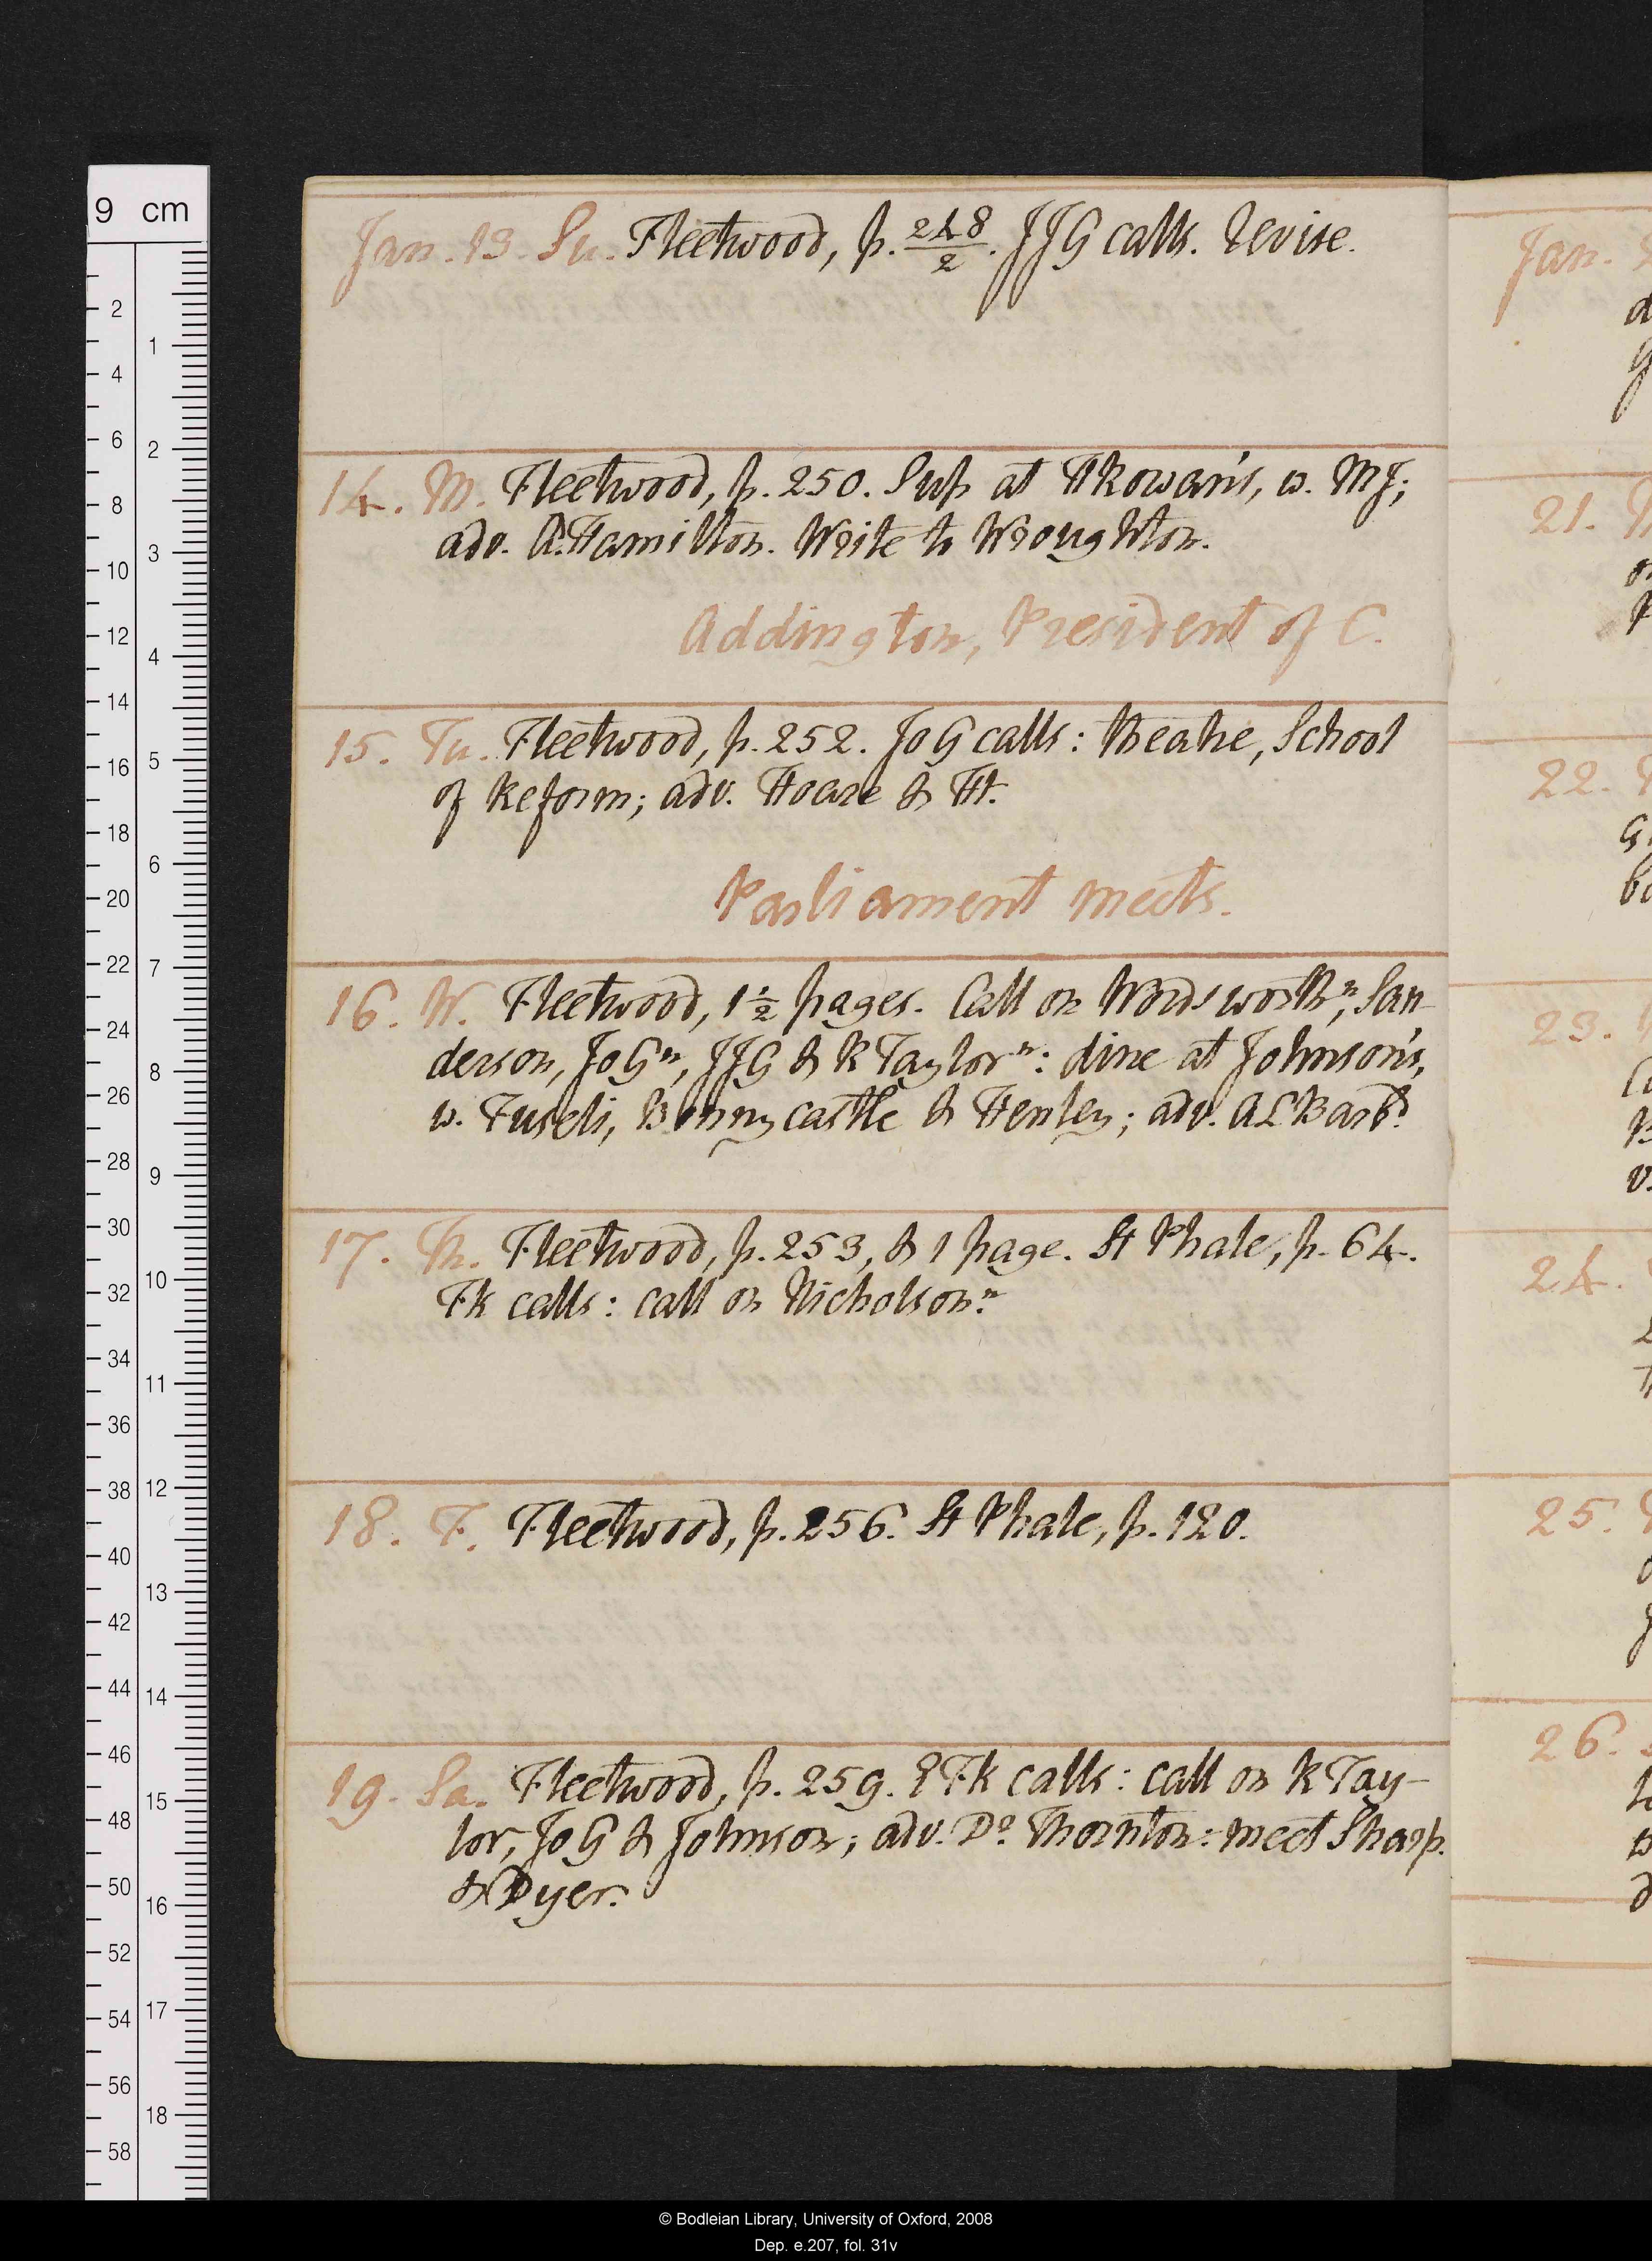 Jan. 13. Su. Fleetwood, p. 248/2. JJG calls. Revise.
14. M. Fleetwood, p. 250. Sup at HRowan's, w. MJ;
adv. A. Hamilton. Write to Wroughton.
Addington, President of C.
15. Tu. Fleetwood, p. 252. JoG calls: theatre, School
of Reform; adv. Hoare & Ht.
Parliament meets.
16. W. Fleetwood, 1½ pages. Call on Wordsworthⁿ, San-
derson, JoGⁿ, JJG & RTaylorⁿ: dine at Johnson's,
w. Fuseli, Bonnycastle & Henley; adv. ALBarbd.
17. Th. Fleetwood, p. 253, & 1 page. St Phale, p. 64.
Fk calls: call on Nicholsonⁿ.
18. F. Fleetwood, p. 256. St Phale, p. 120.
19. Sa. Fleetwood, p. 259. EFk calls: call on RTay-
lor, JoG & Johnson; adv. Dr. Thornton: meet Sharp.
& Dyer.
Jan.
21.
22.
23.
24.
25.
26.
9 cm
© Bodleian Library, University of Oxford, 2008
Dep. e.207, fol. 31v